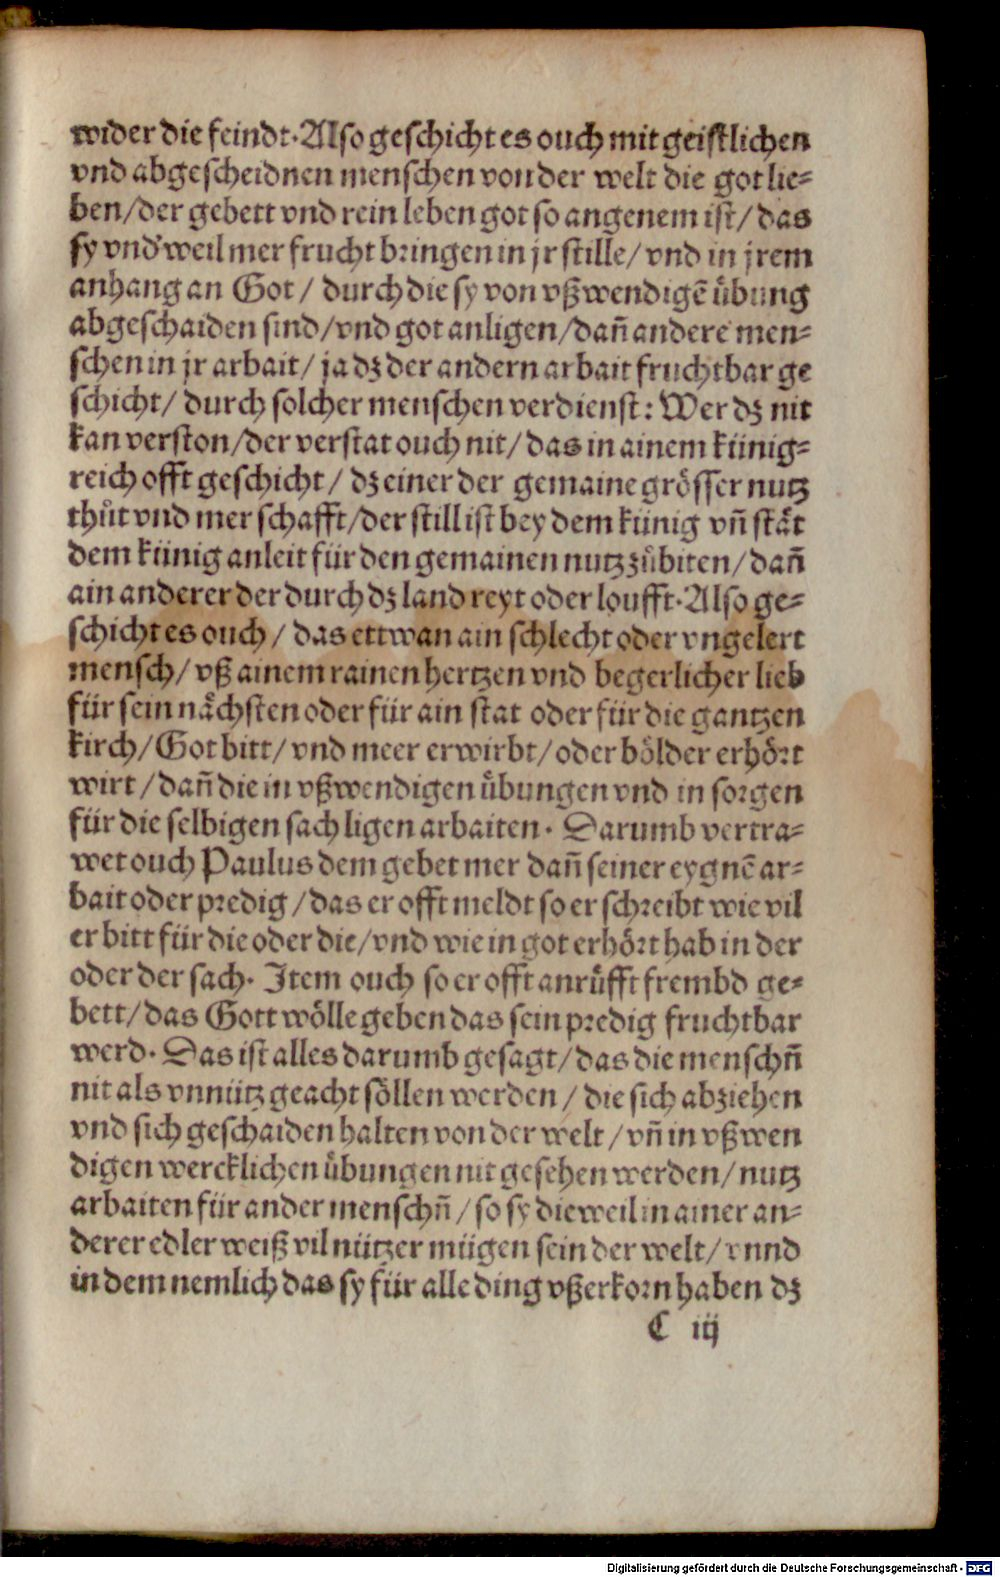 wider die feindt. Also geschicht es ouch mit geistlichen
vnd abgescheidnen menschen von der welt die got lie-
ben/der gebett vnd rein leben got so angenem ist/ das
sy vnd'weil mer frucht bringen in jr stille/ vnd in jrem
anhang an Got/ durch die sy von vßwendigē uͤbung
abgeschaiden sind/vnd got anligen/dañ andere men-
schen in jr arbait/ ja dz der andern arbait fruchtbar ge
schicht/ durch solcher menschen verdienst: Wer dz nit
kan verston/der verstat ouch nit/ das in ainem künig-
reich offt geschicht/ dz einer der gemaine groͤsser nutz
thuͦt vnd mer schafft/der still ist bey dem künig vñ staͤt
dem künig anleit für den gemainen nutz zuͦbiten/dañ
ain anderer der durch dz land reyt oder loufft. Also ge-
schicht es ouch/ das ettwan ain schlecht oder vngelert
mensch/ vß ainem rainen hertzen vnd begerlicher lieb
für sein naͤchsten oder für ain stat oder für die gantzen
kirch/Got bitt/ vnd meer erwirbt/oder boͤlder erhoͤrt
wirt/dañ die in vßwendigen uͤbungen vnd in sorgen
für die selbigen sach ligen arbaiten. Darumb vertra-
wet ouch Paulus dem gebet mer dañ seiner eygnē ar-
bait oder predig/das er offt meldt so er schreibt wie vil
er bitt für die oder die/vnd wie in got erhoͤrt hab in der
oder der sach. Item ouch so er offt anruͤfft frembd ge-
bett/das Gott woͤlle geben das sein predig fruchtbar
werd. Das ist alles darumb gesagt/das die menschñ
nit als vnnütz geacht soͤllen werden/ die sich abziehen
vnd sich geschaiden halten von der welt/vñ in vßwen
digen wercklichen uͤbungen nit gesehen werden/nutz
arbaiten für ander menschñ/so sy dieweil in ainer an-
derer edler weiß vil nützer mügen sein der welt/vnnd
in dem nemlich das sy für alle ding vßerkorn haben dz
C iij
Digitalisierung gefördert durch die Deutsche Forschungsgemeinschaft - DFG